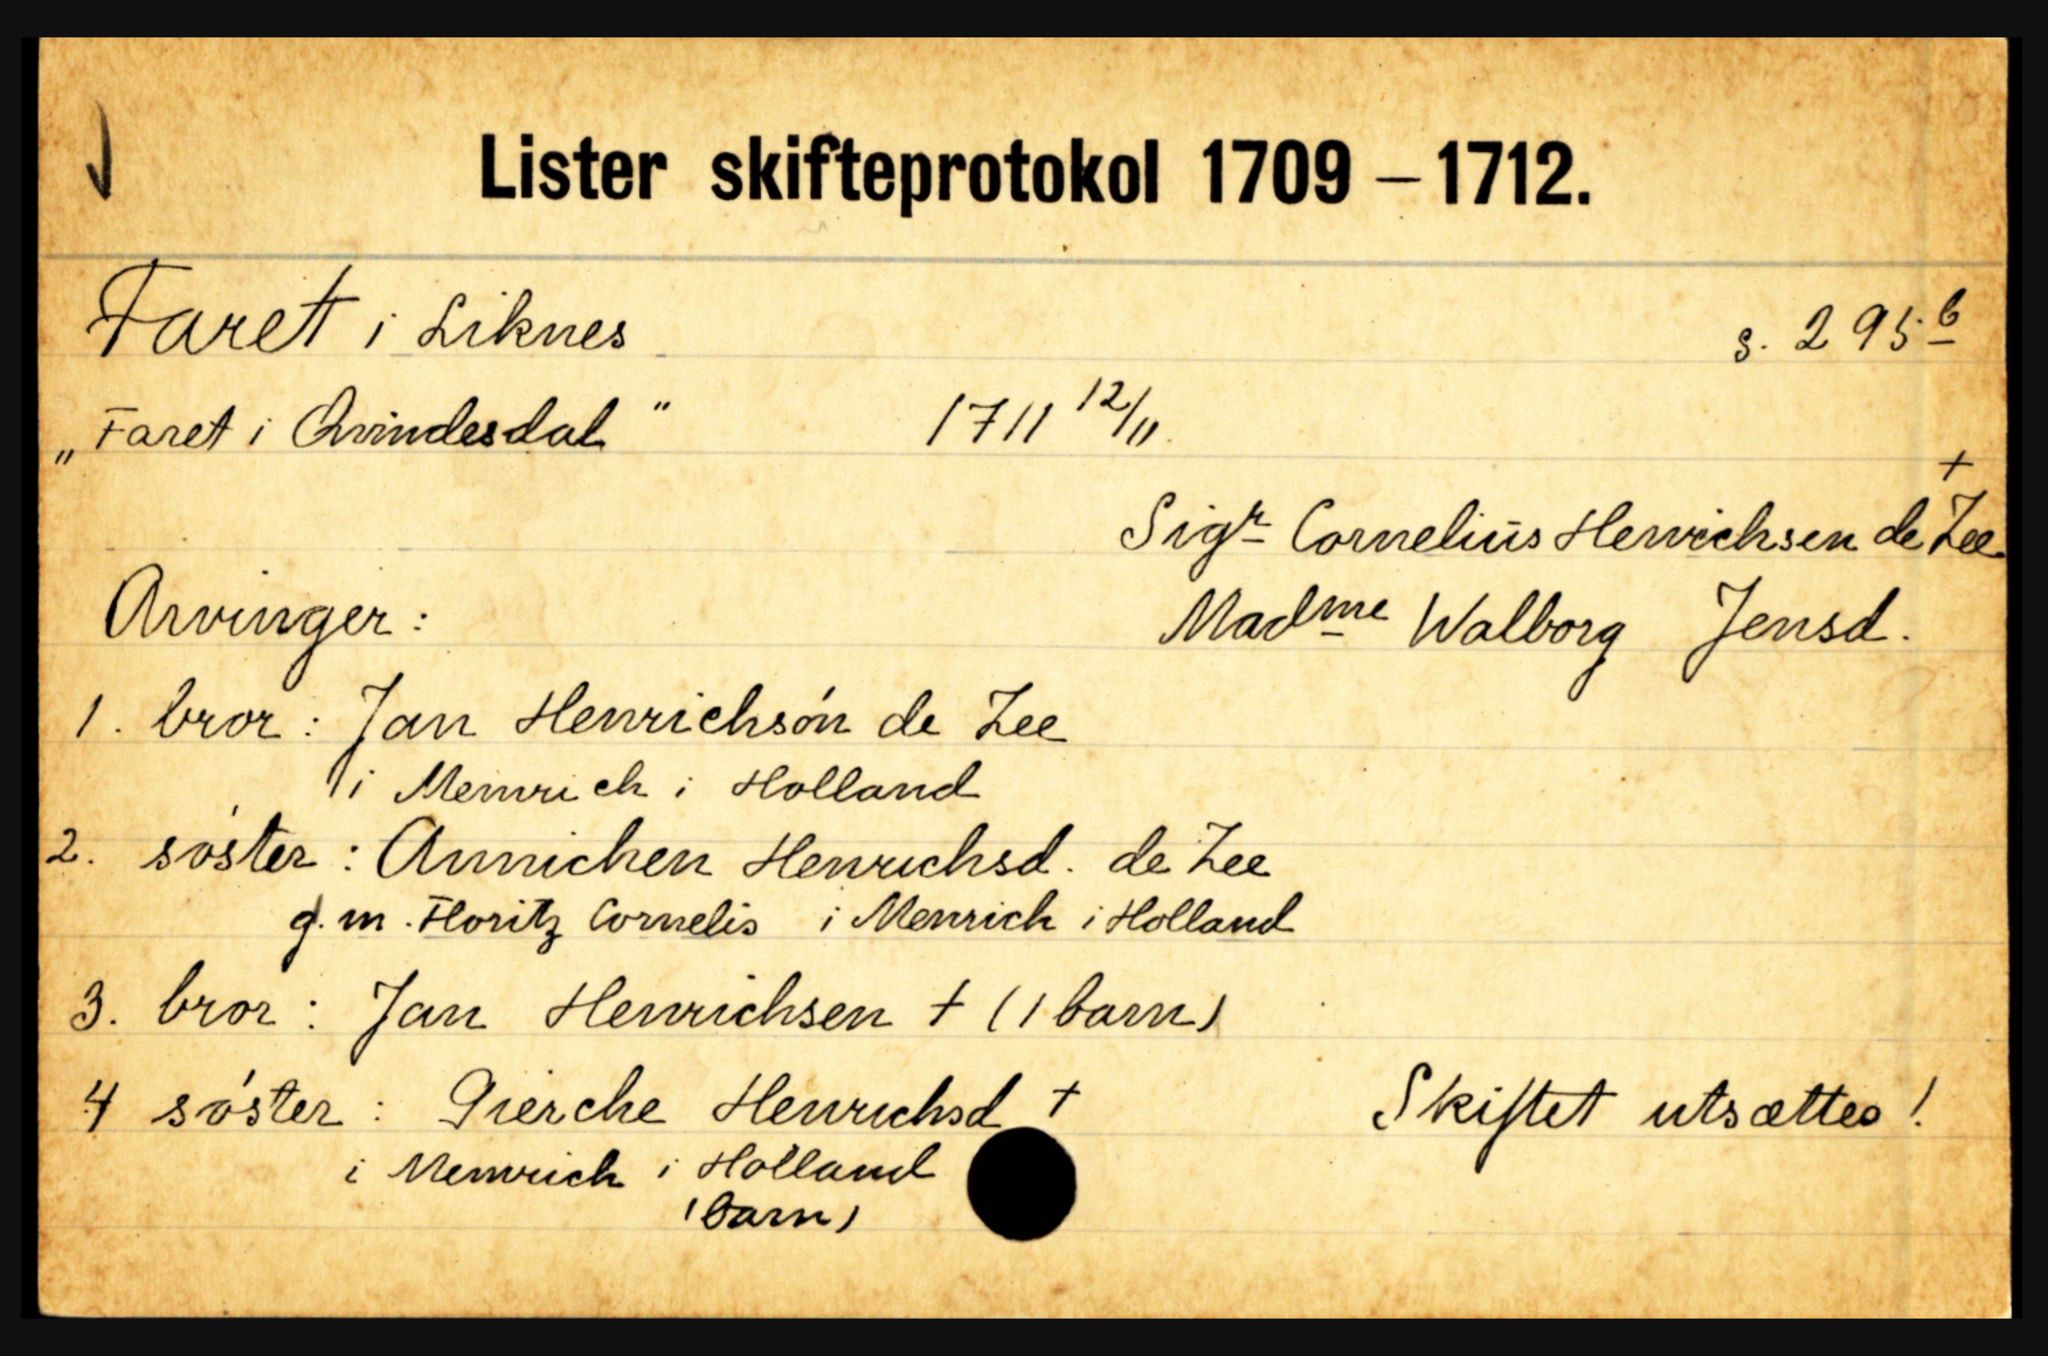 Lister skifteprotokol 1709 – 1712.
Faret i Liknes s. 295 b
„Faret i Qvindesdal" 1711 12/11.
+
Sigr Cornelius Henrichsen de Zee
Arvinger: Madme Walborg Jensd.
1. bror: Jan Henrichsön de Zee
i Mennrich i Holland
2. söster: Annichen Henrichsd. de Zee
g. m. Floritz Cornelis i Menrich i Holland
3. bror: Jan Henrichsen + (1 barn)
4 söster: Gierche Henrichsd + Skiftet utsættes!
i Mennrich i Holland
(barn)